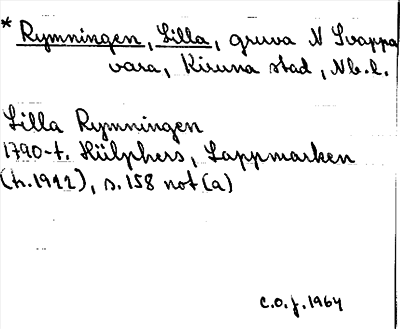 * Rymningen, Lilla, gruva N Svappa
vara, Kiruna stad, Nb.l.
Lilla Rymningen
1790-t. Hülphers, Lappmarken
(tr.1922), s.158 not (a)
C.O.J. 1964